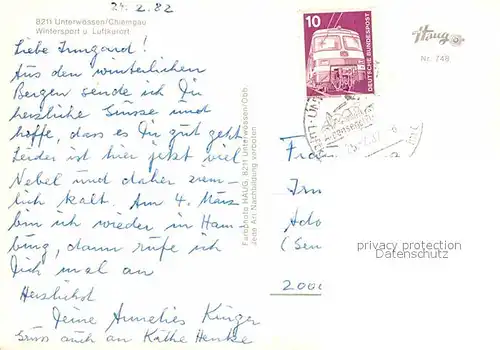 24.2.82
8211 Unterwössen/Chiemgau
Wintersport u. Luftkurort
Liebe Irmgard!
Aus den winterlichen
Bergen sende ich Dir
herzliche Grüsse und
hoffe, dass es Dir gut geht
Leider ist hier jetzt viel
Nebel und daher ziem-
lich kalt. Am 4. März
bin ich wieder in Ham-
burg, dann rufe ich
Dich mal an
Herzlichst
Deine Annelies Krüger
Gruss auch an Käthe Henke
Farbphoto HAUG, 8211 Unterwössen/Obb.
Jede Art Nachbildung verboten
10
DEUTSCHE BUNDESPOST
Haug
Nr. 748
Irm
Ado
(Sen
privacy protection
Datenschutz
2000